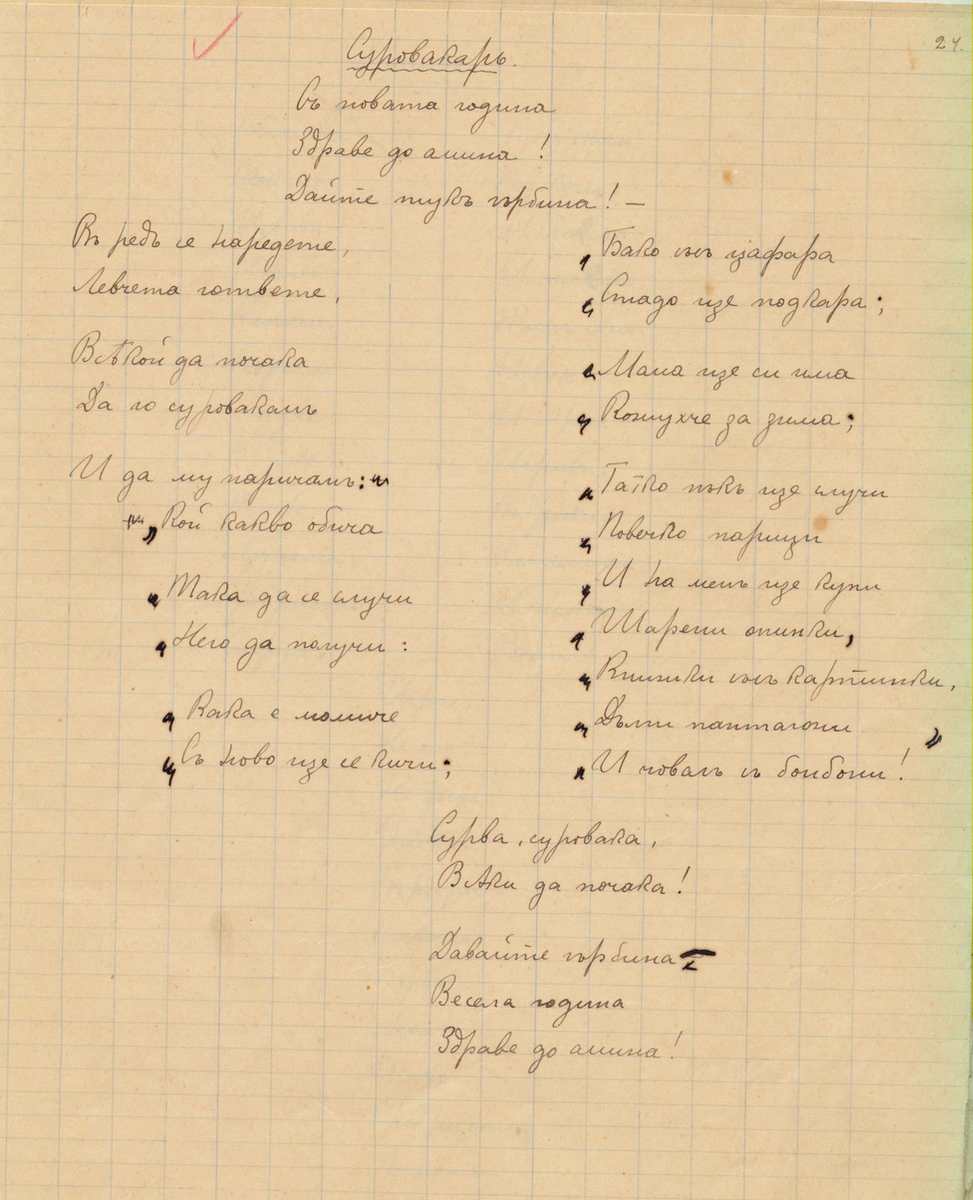 24.
Суровакарь.
Съ новата година
Здраве до амина!
Дайте тукъ гърбина! —
Въ редъ се наредете,
Левчета гответе,
Всѣкой да почака
Да го суровакамъ
И да му наричамъ:
„Кой какво обича
„Така да се случи
„Него да получи:
„Кака е момиче
„Съ ново ще се кичи;
„Бако съсъ цафара
„Стадо ще подкара;
„Мама ще си има
„Кожухче за зима;
„Татко пъкъ ще случи
„Повечко парици
„И на менъ ще купи
„Шарени опинки,
„Книжки съсъ картинки,
„Дълги панталони
„И човалъ съ бонбони!”
Сурва, суровака,
Всѣки да почака!
Давайте гърбина —
Весела година
Здраве до амина!